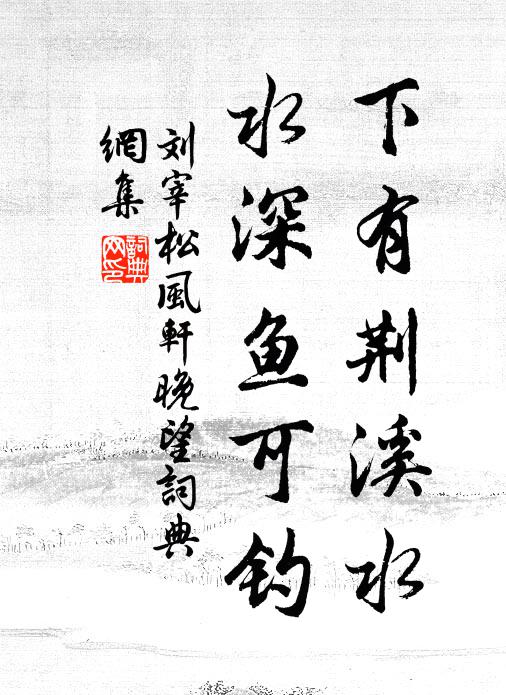 下有荆溪水
水深鱼可钓
刘宰松風軒晚望詞典
網集
詞典
网印